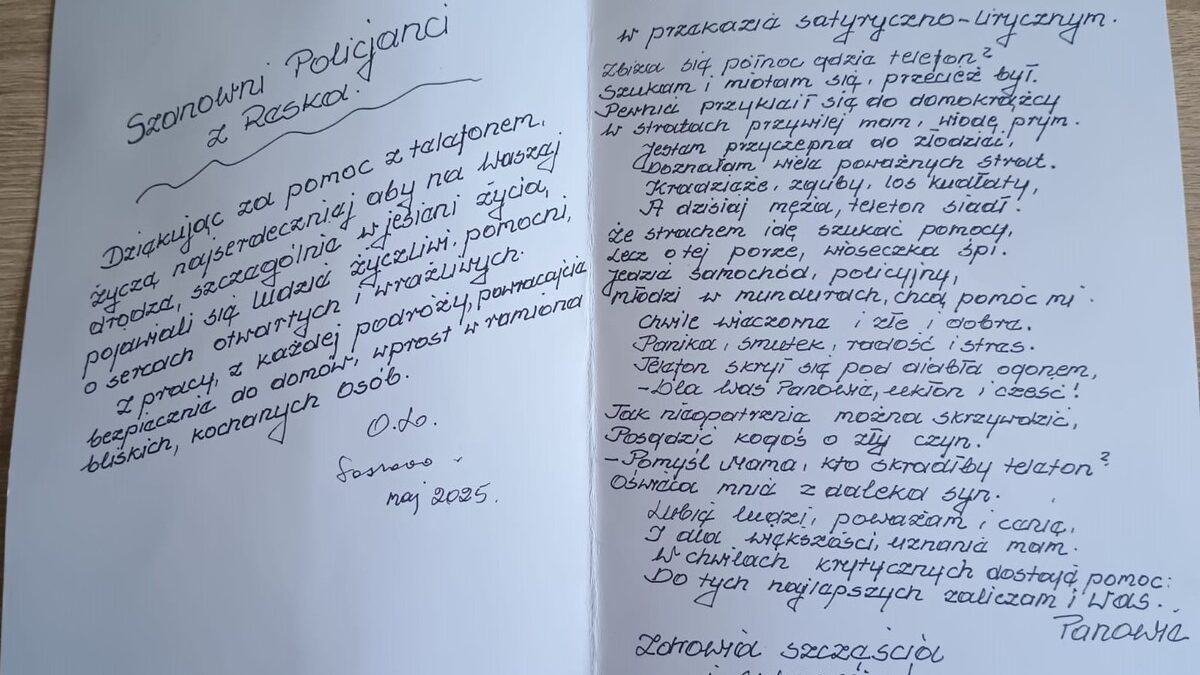 Szanowni Policjanci
z Reska.
Dziękując za pomoc z telefonem,
życzę najserdeczniej aby na Waszej
drodze, szczególnie w jesieni życia,
pojawiali się ludzie życzliwi, pomocni,
o sercach otwartych i wrażliwych.
Z pracy, z każdej podróży, powracajcie
bezpiecznie do domów, wprost w ramiona
bliskich, kochanych osób.
O.Lo.
maj 2025.
w przekazie satyryczno-lirycznym.
Zbliża się północ gdzie telefon?
Szukam i miotam się, przecież był.
Pewnie przykleił się do domokrążcy
w stratach przywilej mam, wiodę prym.
Jestem przyczepna do złodziei,
Doznałam wiele poważnych strat.
Kradzieże, zguby, los kudłaty,
A dzisiaj męża, telefon siadł.
Ze strachem idę szukać pomocy,
Lecz o tej porze, wioseczka śpi.
Jedzie samochód, policyjny,
Młodzi w mundurach, chcą pomóc mi.
Chwile wieczorne i złe i dobre.
Panika, smutek, radość i stres.
Telefon skrył się pod diabła ogonem,
- Dla Was Panowie, ukłon i cześć!
Jak nieopatrznie można skrzywdzić,
Posądzić kogoś o zły czyn.
- Pomyśl Mama, kto skradłby telefon?
Oświeca mnie z daleka syn.
Lubię ludzi, poważam i cenię,
I dla większości, uznanie mam.
W chwilach krytycznych dostaję pomoc:
Do tych najlepszych zaliczam i Was..
Panowie
Zdrowia szczęścia